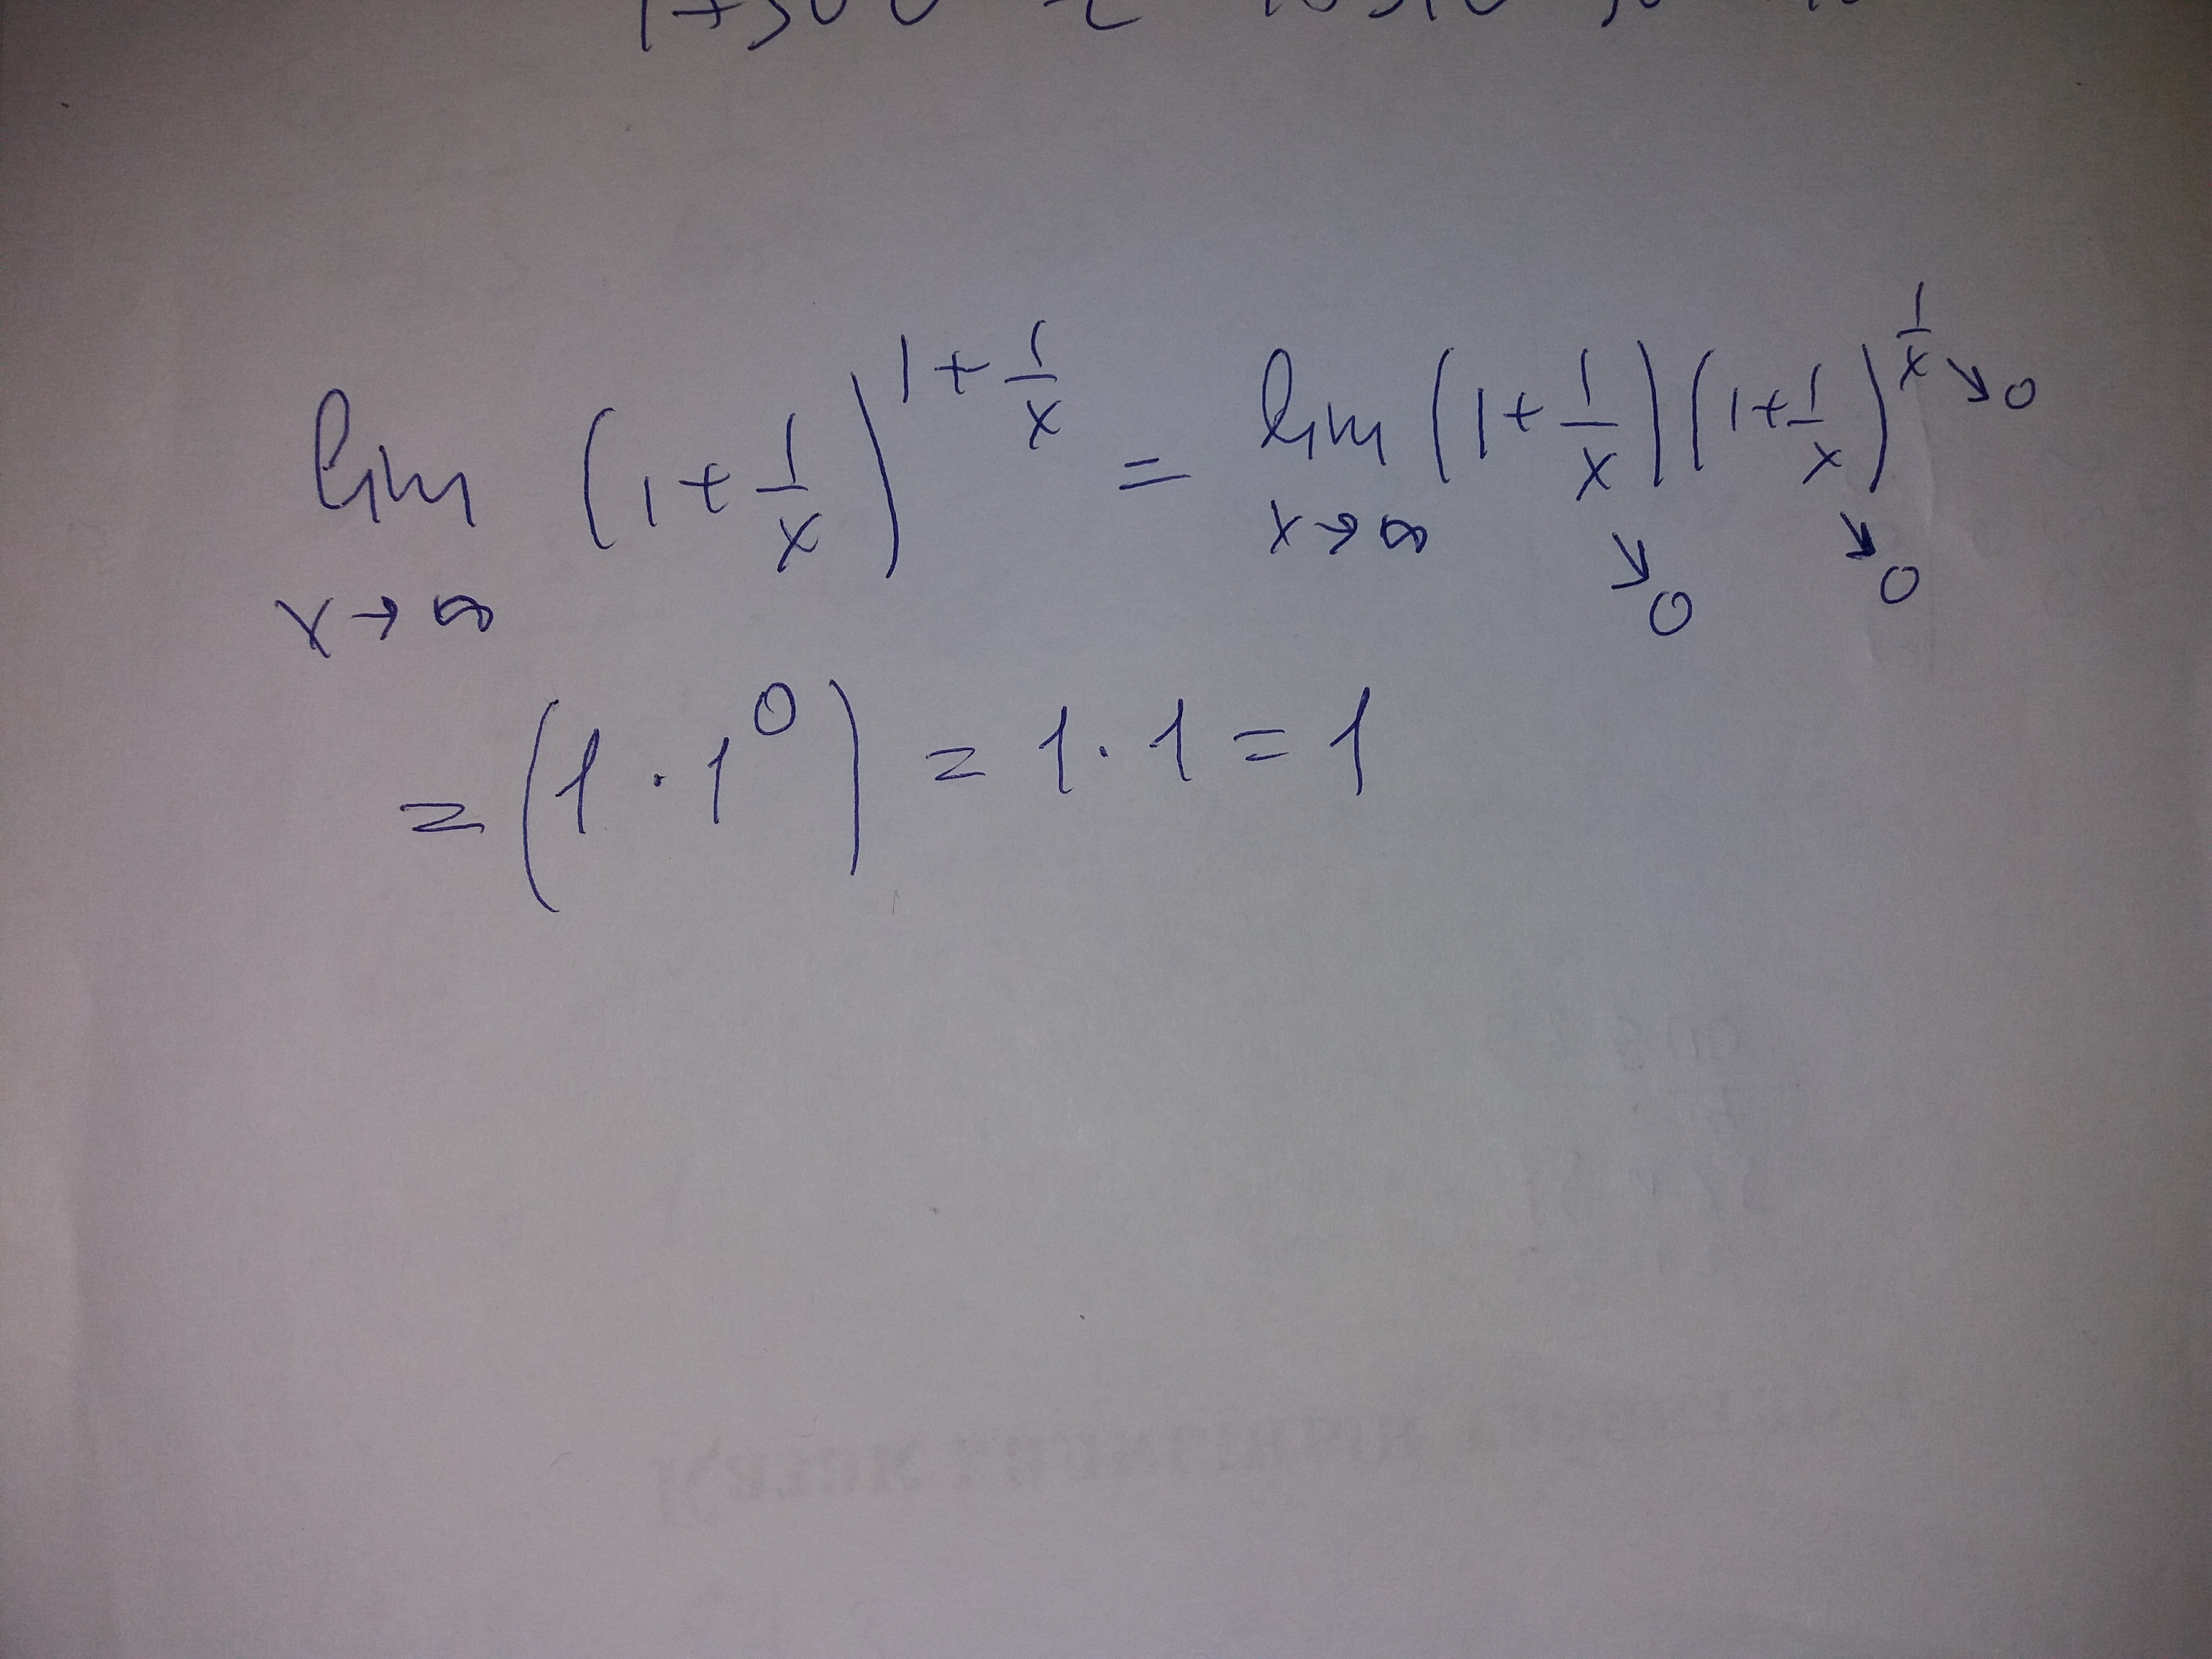 lim (1+1/x)^(1+1/x) = lim (1+1/x)(1+1/x)^(1/x→0)
x→∞ x→∞ ↘0 ↘0
= (1·1^0) = 1·1 = 1